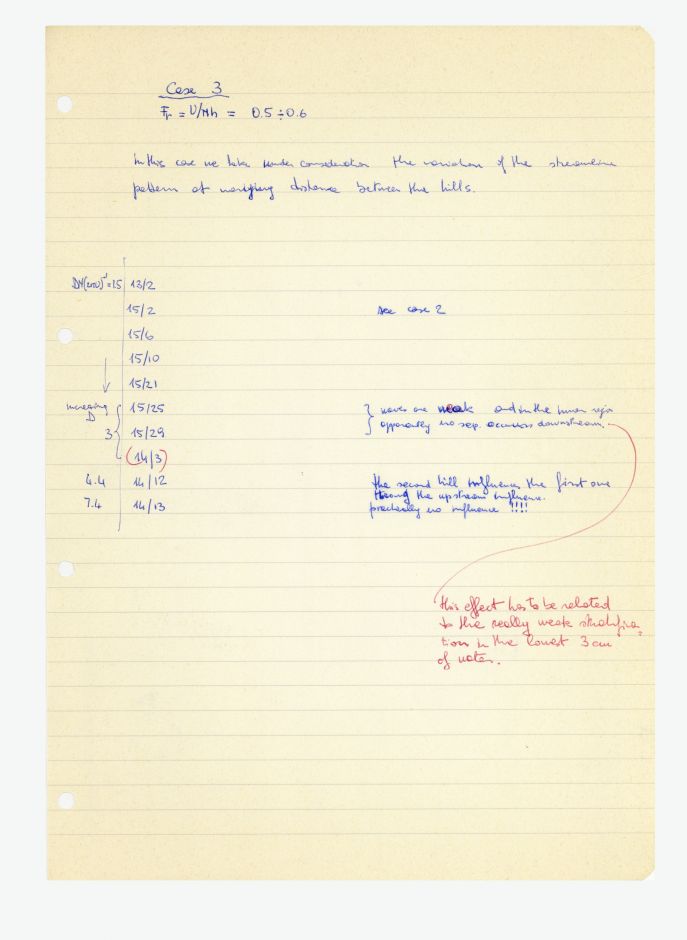 Case 3
Fr = U/Nh = 0.5 ÷ 0.6
In this case we take under consideration the variation of the streamline
pattern at varying distance between the hills.
DN(2πU)⁻¹ = 1.5 13/2
15/2 see case 2
15/6
15/10
15/21
increasing D 15/25 waves are weak and in the inner
3 15/29 apparently no sep. occurs downstream.
(14/3)
4.4 14/12 the second hill influences the first one
the upstream influence.
7.4 14/13 practically no influence !!!!
this effect has to be related
to the really weak stratifica-
tion in the lowest 3 cm
of water.